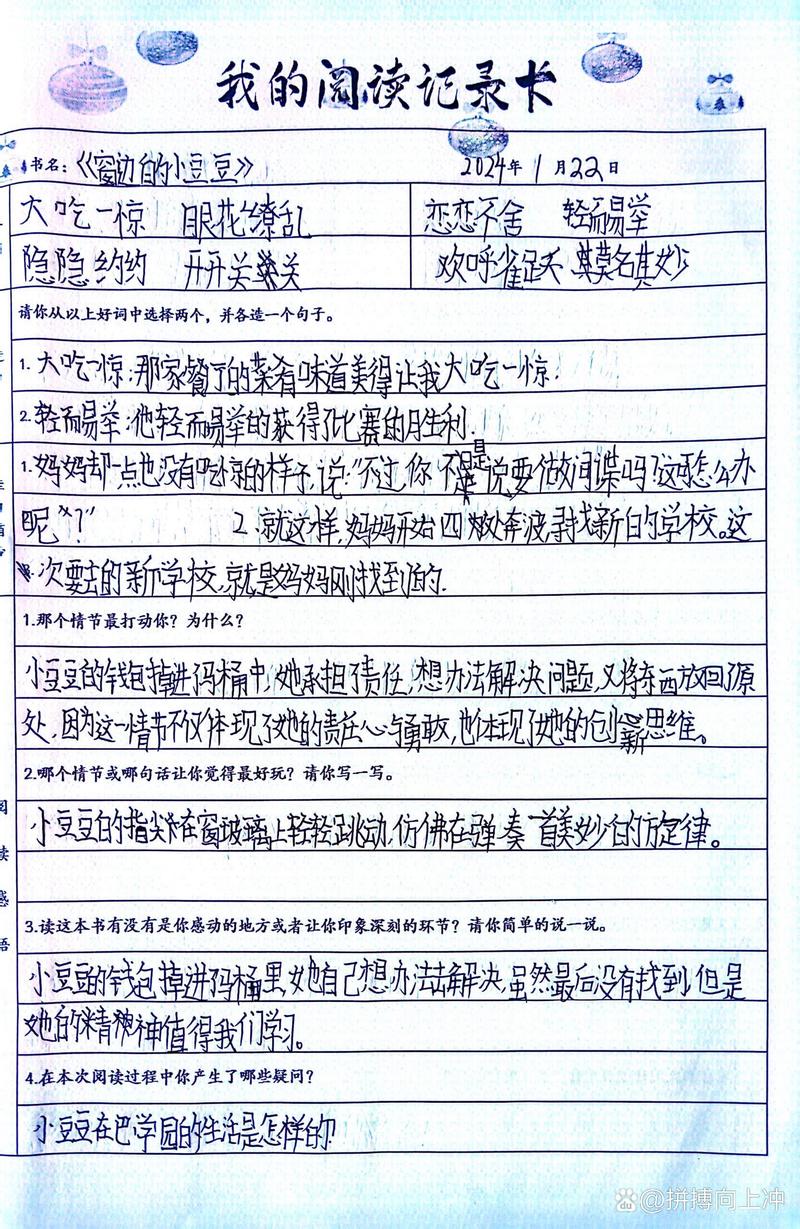 我的阅读记录卡
书名：《窗边的小豆豆》 2024年1月22日
大吃一惊 眼花缭乱 恋恋不舍 轻而易举
隐隐约约 开开关关 欢呼雀跃 莫名其妙
请你从以上好词中选择两个，并各造一个句子。
1.大吃一惊：那家餐厅的菜肴味道美得让我大吃一惊.
2.轻而易举：他轻而易举的获得了比赛的胜利.
1.妈妈却一点也没有吃惊的样子，说："不过，你不是说要做间谍吗？这可怎么办
呢？" 2.就这样，妈妈开始四处奔波，寻找新的学校。这
次要去的新学校，就是妈妈刚找到的.
1.那个情节最打动你？为什么？
小豆豆的钱包掉进马桶中，她承担了责任，想办法解决问题，又将东西放回了原
处，因为这一情节不仅体现了她的责任心与勇敢，也体现了她的创新思维。
2.哪个情节或哪句话让你觉得最好玩？请你写一写。
小豆豆的指尖在窗玻璃上轻轻跳动，仿佛在弹奏一首美妙的旋律。
3.读这本书有没有是你感动的地方或者让你印象深刻的环节？请你简单的说一说。
小豆豆的钱包掉进马桶里，她自己想办法去解决，虽然最后没有找到，但是
她的精神值得我们学习。
4.在本次阅读过程中你产生了哪些疑问？
小豆豆在巴学园的生活是怎样的？
阅
读
感
语
@拼搏向上冲